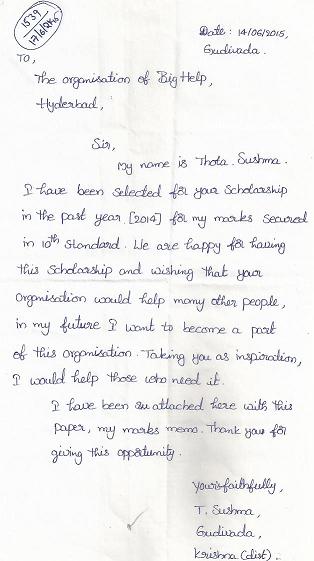 1539
17/6/2015
Date: 14/06/2015,
Gudivada.
To,
The organisation of Big Help,
Hyderbad,
Sir,
My name is Thota. Sushma.
I have been selected for your Scholarship
in the past year [2014] for my marks secured
in 10th Standard. We are happy for having
this Scholarship and wishing that your
Organisation would help many other people,
in my future I want to become a part
of this organisation. Taking you as inspiration,
I would help those who need it.
I have been attached here with this
paper, my marks memo. Thank you for
giving this oppotunity.
Yours faithfully,
T. Sushma,
Gudivada,
Krishna (dist).